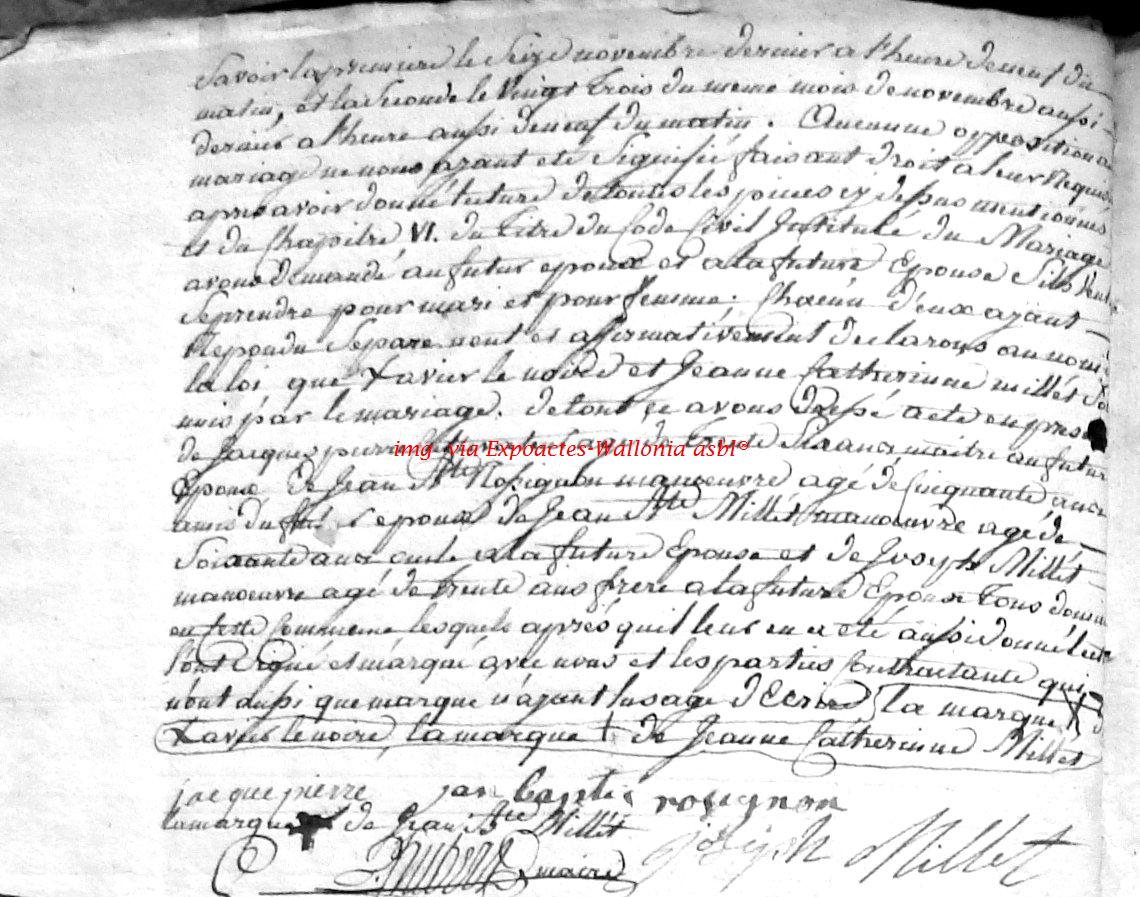 Savoir la premiere le Seize novembre dernier a l'heure de neuf du
matin, et la Seconde le Vingt trois du meme mois de novembre aussi
dernier a l'heure aussi de neuf du matin. Aucunne opposition au
mariage ne nous ayant été Signifié faisant droit a leur Requis
apres avoir donné lecture de toutes les pieces cy dessus mentionnés
et du Chapitre VI. du titre du Code Civil Intitulé du Mariage
avons demandé au futur epoux et a la future Epouse Sils veul
Se prendre pour mari et pour femme. Chacun d'eux ayant
Repondu Separement et affirmativement declarons au nom d
la loi que Xavier le noire et Jeanne Catherinne millét So
unis par le mariage. de tout ce avons Dressé acte en prese
de Jacques pierre agé de Trente Six ans au futur
Epoux de Jean Bte Rosignon manoeuvre agé de Cinquante ans
amis du futur epoux de Jean Bte Millét manoeuvre agé de
Soixante ans oncle a la future Epouse et de Joseph Millét
manoeuvre agé de trente ans frere a la future Epouse tous domic
en cette Commune lesquels après quil leur en a été aussi donné lect
Sont Signé et marqué avec nous et les parties Contractante qui
n'ont aussi que marque n'ayant lusage d'Ecrire la marque X d
Xavier le noire, la marque + de Jeanne Catherinne Millét
jacque pierre jan baptis rosignon
la marque + de Jean Bte Millét
joseph Millet
maire
img via Expoactes-Wallonia asbl®